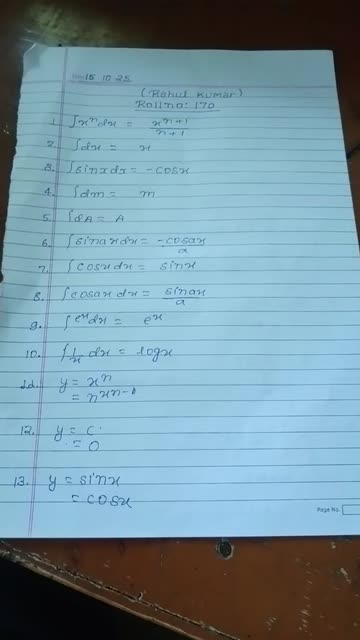 Date 15 10 25
(Rahul Kumar)
Roll no: 170
1. ∫xⁿdx = xⁿ⁺¹/n+1
2. ∫dx = x
3. ∫sinxdx = -cosx
4. ∫dm = m
5. ∫dA = A
6. ∫sinaxdx = -cosax/a
7. ∫cosxdx = sinx
8. ∫cosaxdx = sinax/a
9. ∫eˣdx = eˣ
10. ∫1/x dx = logx
11. y = xⁿ
= nˣⁿ⁻¹
12. y = c
= 0
13. y = sinx
= cosx
Page No.